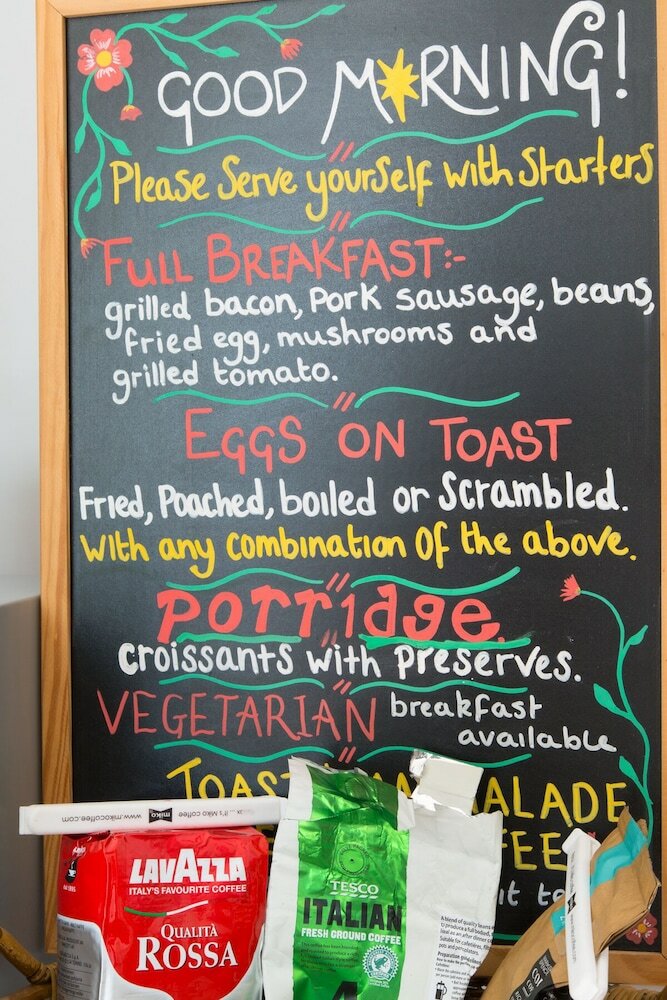 GOOD MORNING!
Please Serve yourself with Starters
FULL BREAKFAST:-
grilled bacon, Pork sausage, beans,
fried egg, mushrooms and
grilled tomato.
EGGS ON TOAST
Fried, Poached, boiled or Scrambled.
With any combination of the above.
porridge.
croissants with Preserves.
VEGETARIAN breakfast
available
www.mikocoffee.com miko ... it's Miko coffee
LAVAZZA
ITALY'S FAVOURITE COFFEE
QUALITÀ
ROSSA
TESCO
ITALIAN
FRESH GROUND COFFEE
4